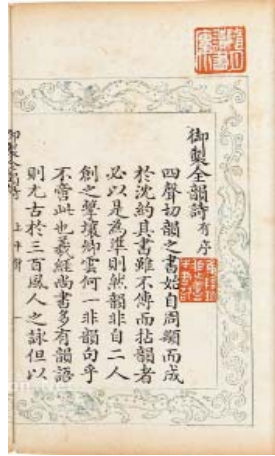 御製全韻詩有序
四聲切韻之書始自周顒而成
於沈約其書雖不傳而拈韻者
必以是為準則然韻非自二人
創之擊壤卿雲何一非韻句乎
不啻此也羲經尚書多有韻語
則尤古於三百風人之詠但以
御製全韻詩
上平聲